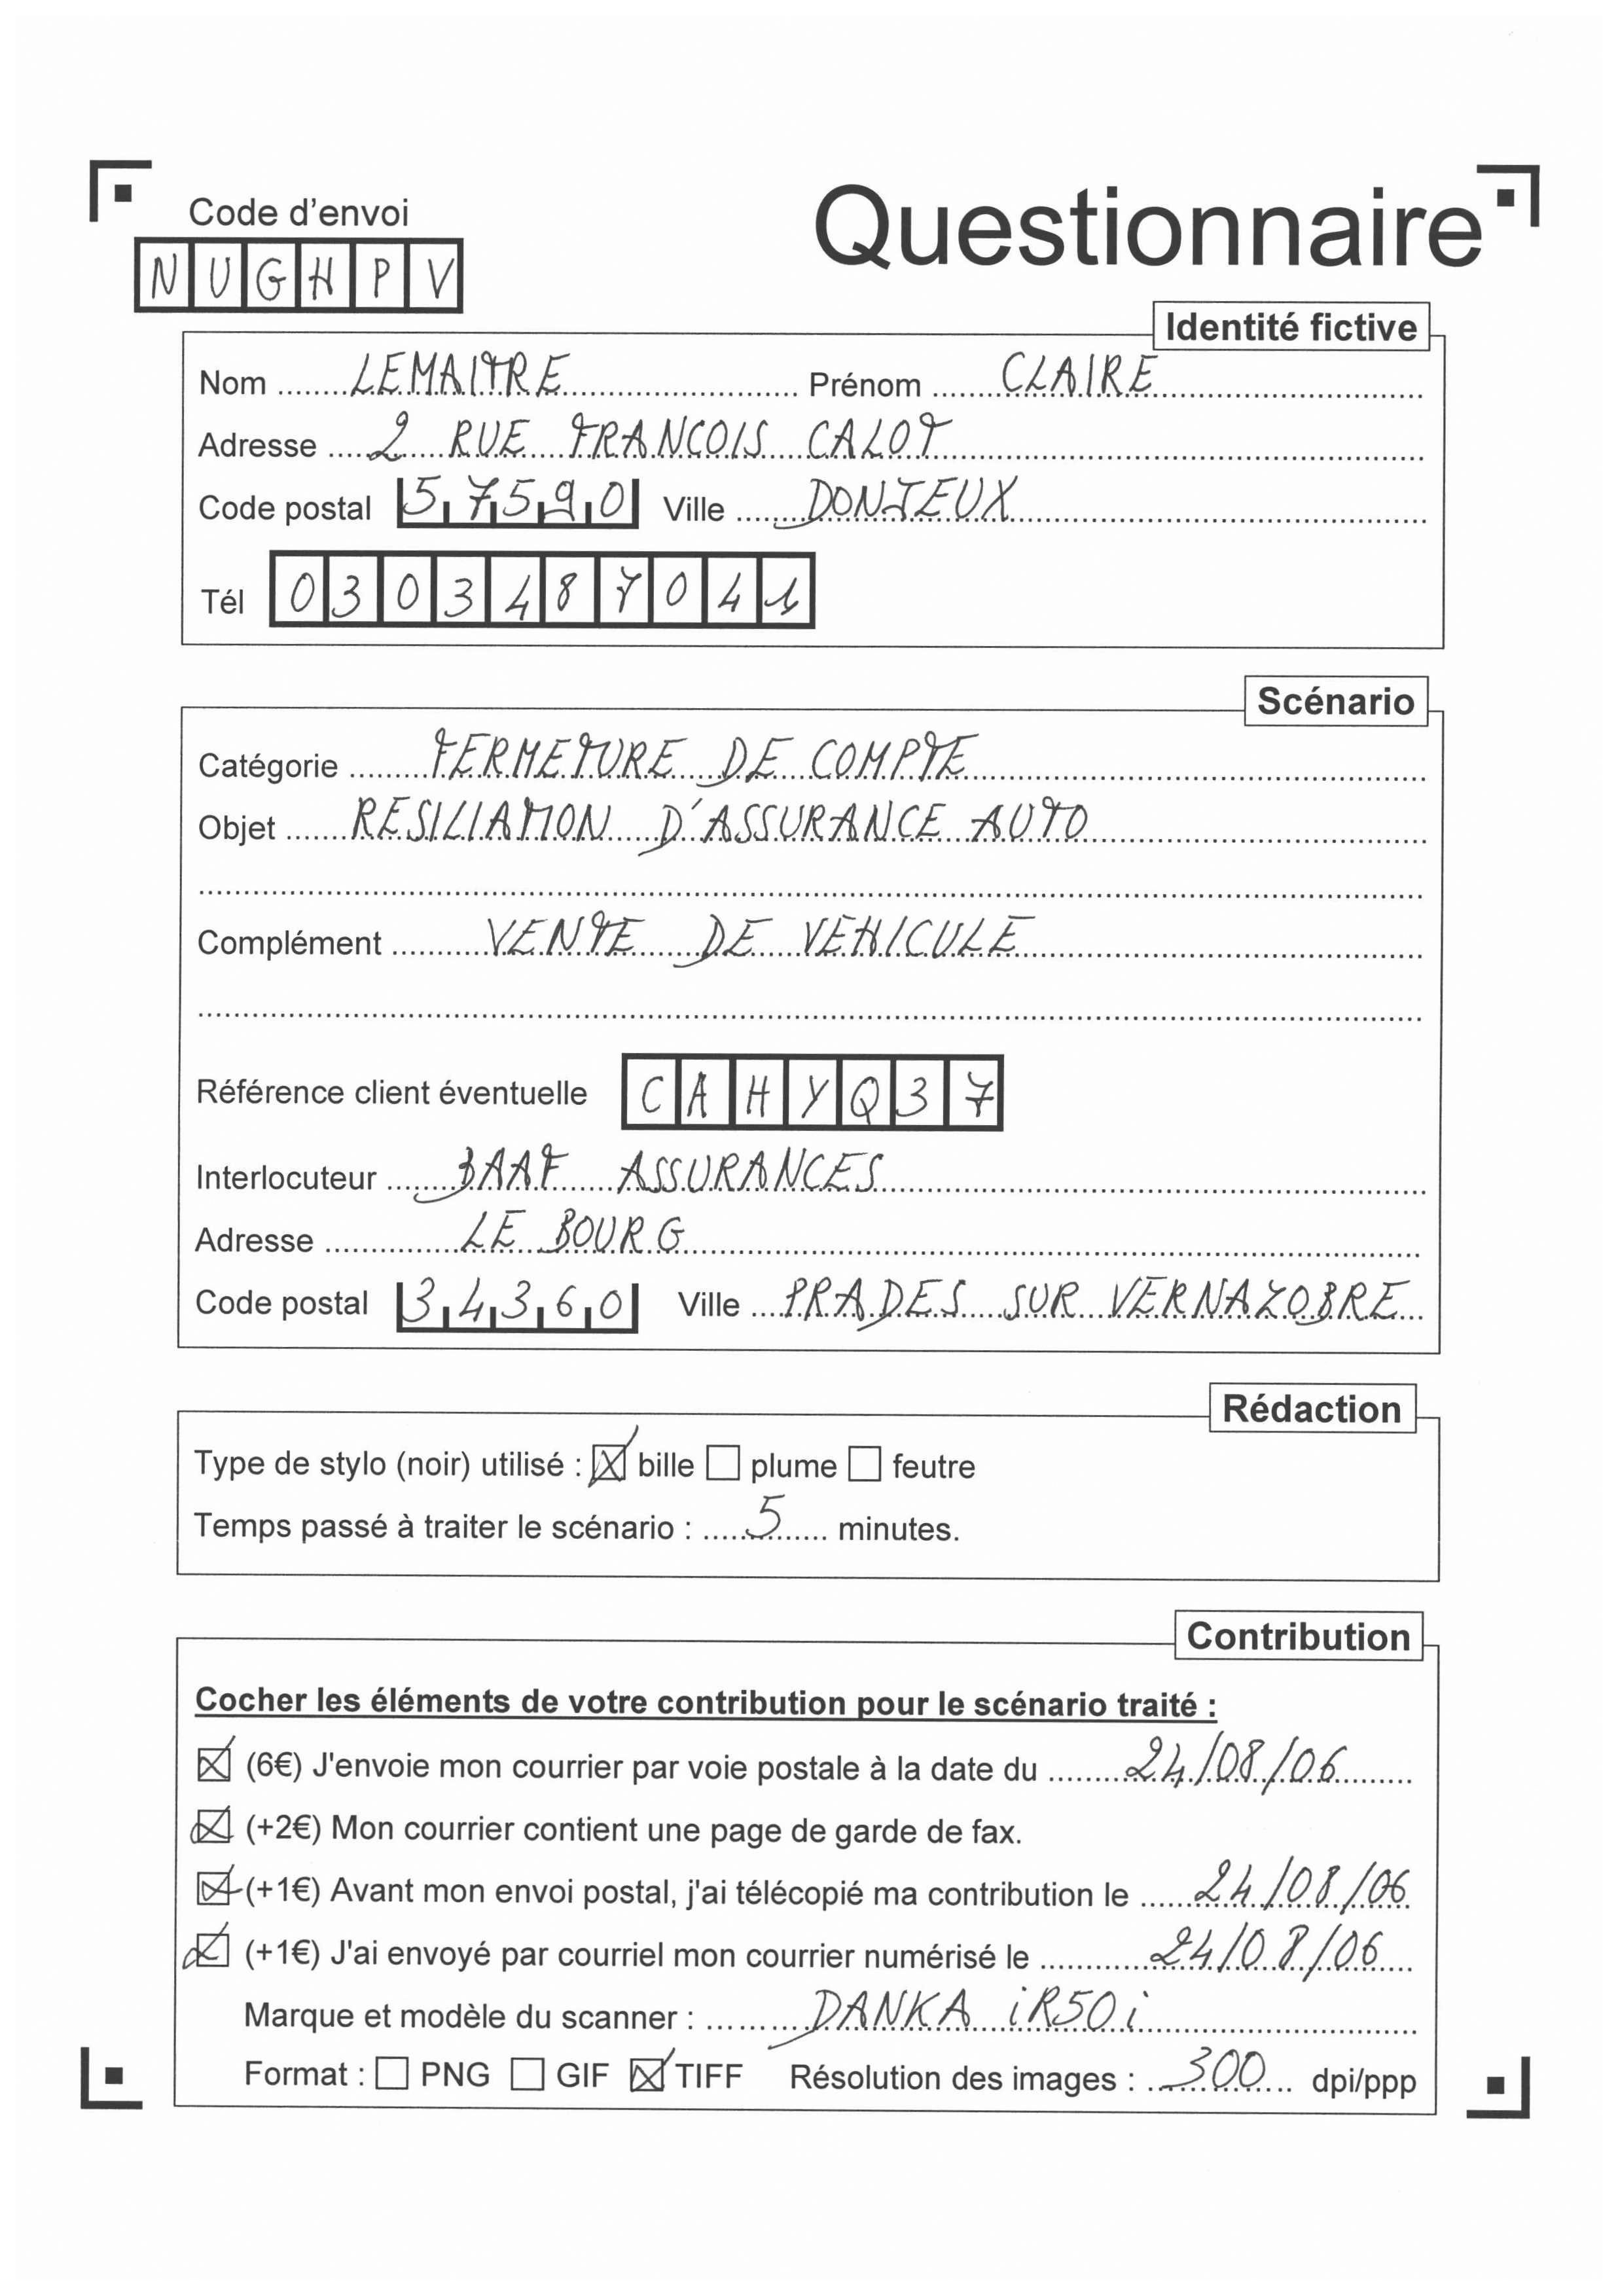 Code d'envoi
Questionnaire
NUGHPV
Identité fictive
Nom ....... LEMAITRE ....... Prénom ....... CLAIRE
Adresse ....... 2 RUE FRANCOIS CALOT
Code postal 57590 Ville ....... DONJEUX
Tél 0303487041
Scénario
Catégorie ....... FERMETURE DE COMPTE
Objet ....... RESILIATION D'ASSURANCE AUTO
Complément ....... VENTE DE VEHICULE
Référence client éventuelle CAHYQ37
Interlocuteur ....... BAAF ASSURANCES
Adresse ....... LE BOURG
Code postal 34360 Ville ....... PRADES SUR VERNAZOBRE
Rédaction
Type de stylo (noir) utilisé : ☒ bille ☐ plume ☐ feutre
Temps passé à traiter le scénario : ....... 5 ....... minutes.
Contribution
Cocher les éléments de votre contribution pour le scénario traité :
☒ (6€) J'envoie mon courrier par voie postale à la date du ....... 24/08/06
☒ (+2€) Mon courrier contient une page de garde de fax.
☒ (+1€) Avant mon envoi postal, j'ai télécopié ma contribution le ....... 24/08/06
☒ (+1€) J'ai envoyé par courriel mon courrier numérisé le ....... 24/08/06
Marque et modèle du scanner : ....... DANKA iR50i
Format : ☐ PNG ☐ GIF ☒ TIFF Résolution des images : ....... 300 ....... dpi/ppp